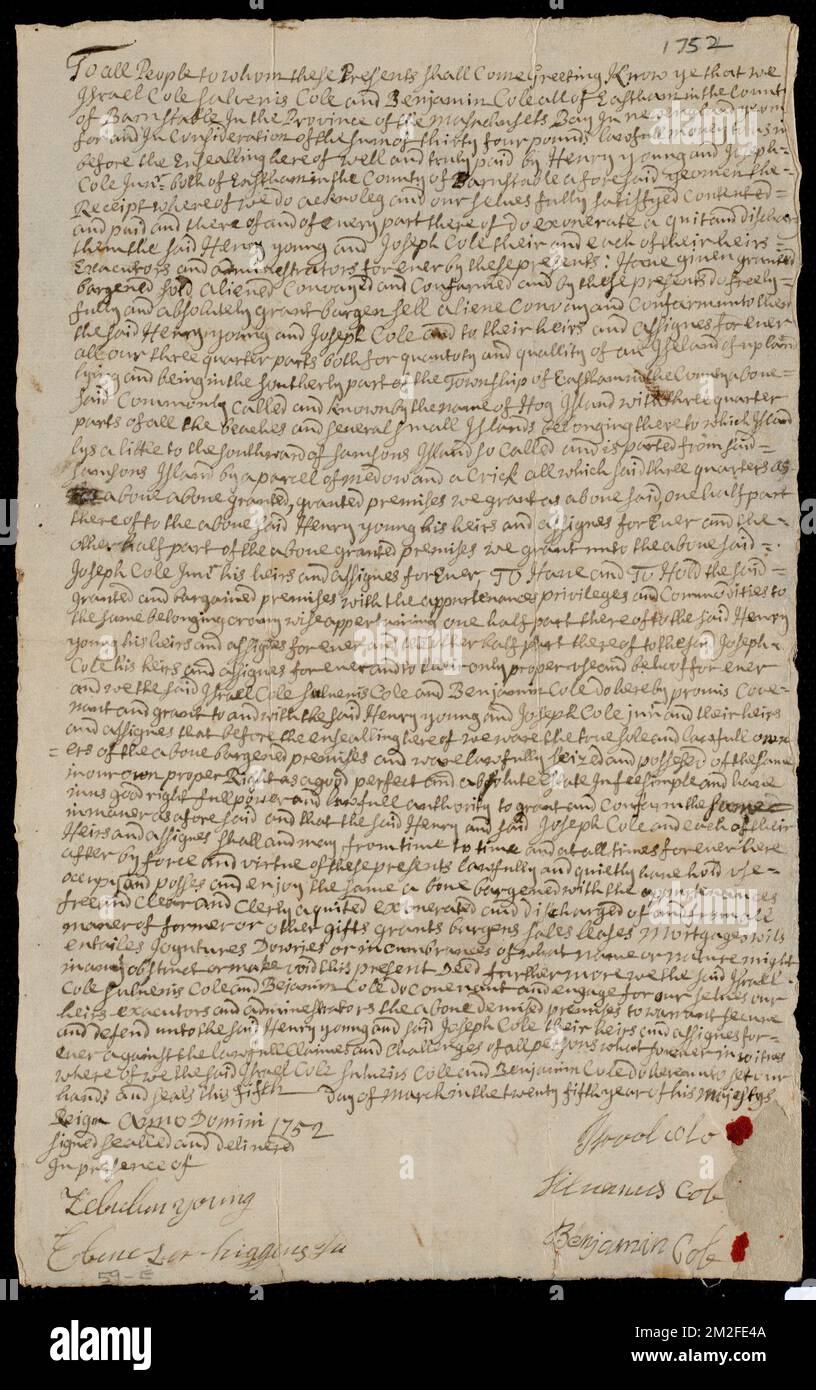 1752
To all People to whom these Presents shall Come Greeting Know ye that we
Israel Cole Salvenis Cole and Benjamin Cole all of Eastham in the County
of Barnstable In the Province of the Masachusets Bay In new england yeomen
for and In Consideration of the sum of thirty four pounds lawfull money to us in
before the Ensealling here of well and truly paid by Henry young and Joseph=
Cole Junr both of Eastham in the County of Barnstable afore said yeomen the=
Receipt where of we do acknowleg and our selves fully satisfyed Contented=
and paid and there of and of Every part there of do exonerate aquit and dischar
them the said Henry young and Joseph Cole their and each of their heirs=
Executors and administrators for ever by these presents: Have given granted
bargened sold aliened Convayed and Confarmed and by these presents do freely=
fully and absolutely grant bargen sell aliene Convay and Confarm unto them
the said Henry young and Joseph Cole and to their heirs and assignes for ever
all our three quarter parts both for quantoty and quallity of an Island of upland
lying and being in the southerly part of the Township of Eastham in the County above=
said Commonly Called and known by the name of Hog Island with three quarter
parts of all the beaches and several small Islands belonging there to which Island
lys a little to the southward of Samsons Island so Called and is parted from said=
Samsons Island by a parcel of medow and a Crick all which said three quarters as
above above granted, granted premises we grant as above said, one half part
there of to the above said Henry young his heirs and assignes for Ever and the=
other half part of the above granted premises we grant unto the above said=.
Joseph Cole Junr his heirs and assignes for Ever, To Have and To Hold the said=
granted and bargained premises with the appurtenances privileges and Commodities to
the same belonging or any wise appertaining one half part there of to the said Henry
young his heirs and assignes for ever and the other half part there of to the said Joseph=
Cole his heirs and assignes for ever and to their only proper use and behoof for ever
and we the said Israel Cole Salvenis Cole and Benjamin Cole do hereby promis Cove=
nant and grant to and with the said Henry young and Joseph Cole junr and their heirs
and assignes that before the ensealling here of we ware the true sole and lawfull own
= ers of the above bargened premises and ware lawfully seized and possesed of the same
in our own proper Right as a good perfect and absolute Estate In fee simple and have
in us good right full power and lawfull authority to grant and Confarm the same
in maner as afore said and that the said Henry and said Joseph Cole and each of their
Heirs and assignes shall and may from time to time and at all times for ever here
after by force and virtue of these presents lawfully and quietly have hold use=
ocupy and posses and enjoy the same above bargened with the appurtenances
free and Clear and Clerly aquited exonerated and discharged of and from all
maner of former or other gifts grants bargens sales leases Mortgages wils
entailes Joyntures Dowries or incumbrances of what name or nature might
in any obstruct or make void this present Deed furthermore we the said Israel=
Cole Salvenis Cole and Bejamin Cole do Covenant and engage for our selves our
heirs executors and administrators the above demised premises to warrant secure
and defend unto the said Henry young and said Joseph Cole their heirs and assignes for=
ever against the lawfull Claimes and Challenges of all persons what so ever in witnes
where of we the said Israel Cole Salveirs Cole and Benjamin Cole do hereunto set our
hands and seals this fifth Day of March in the twenty fifth year of his Majestys
Reign Anno Domini 1752
signed sealled and delivered
In presence of
Isrool Colo
Zebulun young
Silvanus Cole
Ebenezer higgins
Benjamin Cole
59-E
alamy
Image ID: 2M2FE4A
www.alamy.com